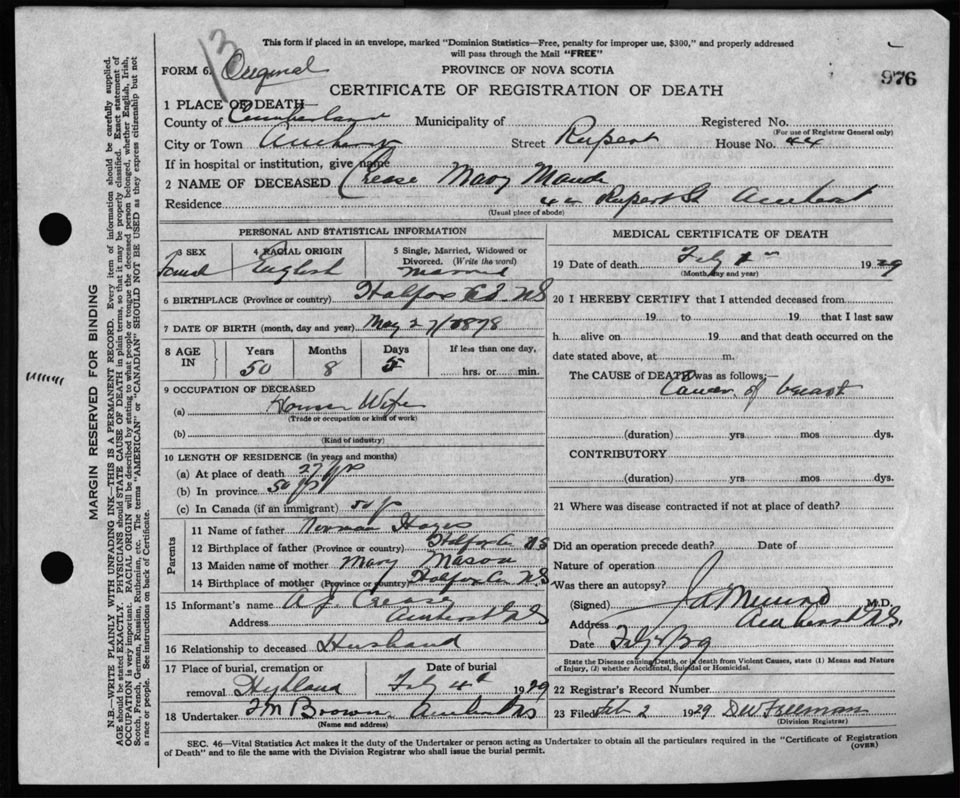 This form if placed in an envelope, marked "Dominion Statistics—Free, penalty for improper use, $300," and properly addressed
will pass through the Mail "FREE"
13
FORM 6. Original PROVINCE OF NOVA SCOTIA 976
CERTIFICATE OF REGISTRATION OF DEATH
1 PLACE OF DEATH—
County of Cumberland Municipality of Registered No.
(For use of Registrar General only)
City or Town Amherst Street Rupert House No. 44
If in hospital or institution, give name
2 NAME OF DECEASED Crease Mary Maude
Residence 44 Rupert St Amherst
(Usual place of abode)
PERSONAL AND STATISTICAL INFORMATION
3 SEX 4 RACIAL ORIGIN 5 Single, Married, Widowed or
Divorced. (Write the word)
English Married
6 BIRTHPLACE (Province or country) Halfox Co NS
7 DATE OF BIRTH (month, day and year) May 27/1878
8 AGE IN Years Months Days If less than one day,
50 8 5 hrs. or min.
9 OCCUPATION OF DECEASED
(a) House Wife
(Trade or occupation or kind of work)
(b)
(Kind of industry)
10 LENGTH OF RESIDENCE (in years and months)
(a) At place of death 27 yrs
(b) In province 50 yrs
(c) In Canada (if an immigrant) 50 yr
Parents
11 Name of father Norman Hayes
12 Birthplace of father (Province or country) Halfox Co NS
13 Maiden name of mother Mary Mason
14 Birthplace of mother (Province or country) Halfox Co NS
15 Informant's name A. J. Crease
Address Amherst NS
16 Relationship to deceased Husband
17 Place of burial, cremation or Date of burial
removal Highland Feby 4th 1929
18 Undertaker Brown Amherst NS
(Name and address)
MEDICAL CERTIFICATE OF DEATH
19 Date of death Feby 1929
(Month, day and year)
20 I HEREBY CERTIFY that I attended deceased from
19 to 19 that I last saw
h alive on 19 and that death occurred on the
date stated above, at m.
The CAUSE of DEATH was as follows;—
Cancer of breast
(duration) yrs mos dys.
CONTRIBUTORY
(duration) yrs. mos. dys.
21 Where was disease contracted if not at place of death?
Did an operation precede death? Date of
Nature of operation
Was there an autopsy?
(Signed) Munro M.D.
Address Amherst NS.
Date Feby /29
State the Disease causing Death, or in death from Violent Causes, state (1) Means and Nature
of Injury, (2) whether Accidental, Suicidal or Homicidal.
22 Registrar's Record Number
23 Filed Feb 2 1929 DW Freeman
(Division Registrar)
SEC. 46—Vital Statistics Act makes it the duty of the Undertaker or person acting as Undertaker to obtain all the particulars required in the "Certificate of Registration
of Death" and to file the same with the Division Registrar who shall issue the burial permit. (OVER)
MARGIN RESERVED FOR BINDING
N.B.—WRITE PLAINLY WITH UNFADING INK—THIS IS A PERMANENT RECORD. Every item of information should be carefully supplied.
AGE should be stated EXACTLY. PHYSICIANS should STATE CAUSE OF DEATH in plain terms, so that it may be properly classified. Exact statement of
OCCUPATION is very important. RACIAL ORIGIN will be described by stating to what people or tongue the deceased person belonged, whether English, Irish,
Scotch, French, German, Russian, Ruthenian, etc. The terms "AMERICAN" or "CANADIAN" SHOULD NOT BE USED as they express citizenship but not
a race or people. See instructions on back of Certificate.